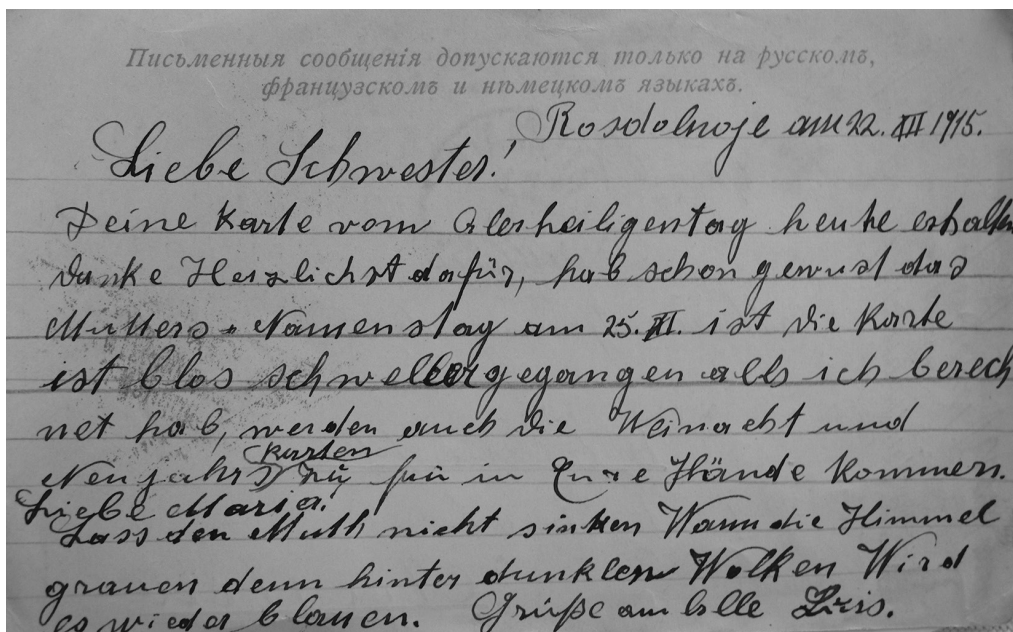 Письменныя сообщенія допускаются только на русскомъ,
французскомъ и нѣмецкомъ языкахъ.
Rosdolnoje am 22. XII 1915.
Liebe Schwester!
Deine Karte vom Alerheiligentag heute erhalten
danke Herzlichst dafür, hab schon gewust das
Mutters Namenstag am 25. XI. ist die Karte
ist blos schneller gegangen alls ich berech
net hab, werden auch die Weinacht und
Neujahrs Karten zu früh in Eure Hände kommen.
Liebe Maria!
Lass den Muth nicht sinken Wann die Himmel
grauen denn hinter dunklen Wolken Wird
es wieder blauen. Grüße am alle